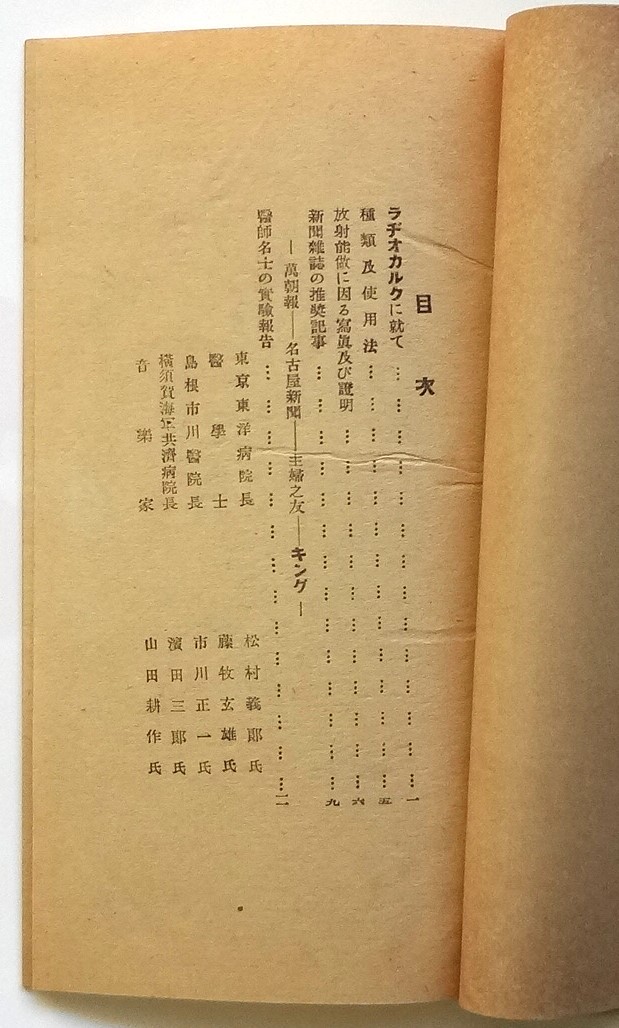 目次
ラヂオカルクに就て…………………………………一
種類及使用法…………………………………五
放射能倣に因る寫眞及び證明…………………………………六
新聞雜誌の推奬記事…………………………………九
―萬朝報――名古屋新聞――主婦之友――キング―
醫師名士の實驗報告…………………………………二
東京東洋病院長 松村義郞氏
醫學士 藤牧玄雄氏
島根市川醫院長 市川正一氏
橫須賀海軍共濟病院長 濱田三郞氏
音樂家 山田耕作氏